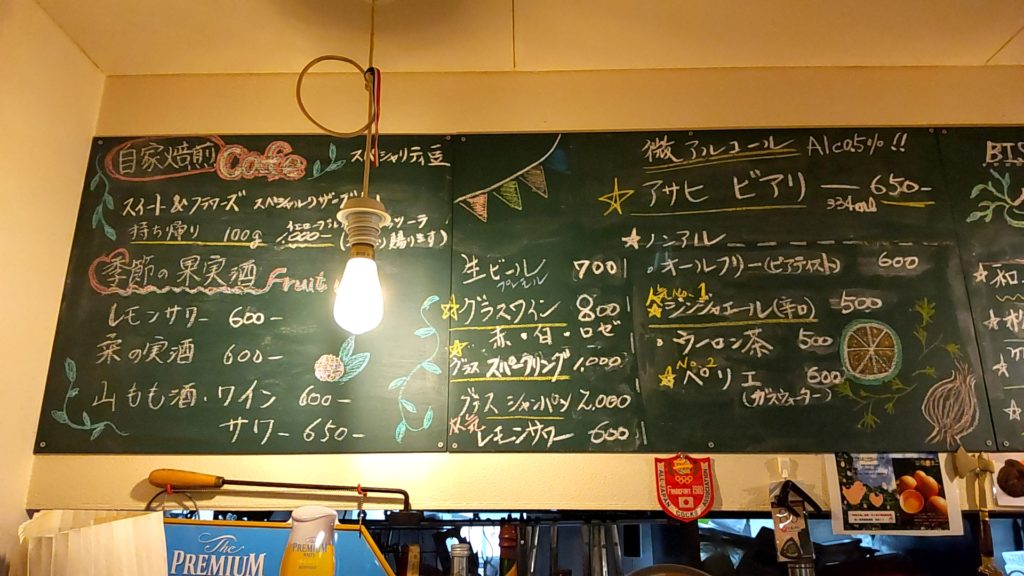 自家焙煎 Cafe
スペシャリティ豆
スイート&フラワーズ
持ち帰り 100g 1,000-
季節の果実酒 Fruit
レモンサワー 600-
山もも酒・ワイン 600-
サワー 650-
の実酒 600-
生ビール 700
グラスワイン 800
赤・白・ロゼ
グラス スパークリング 1,000
グラス シャンパン 2,000
人気 レモンサワー 600
微アルコール Alc0.5%!!
アサヒ ビアリー 650-
334ml
ノンアル
・オールフリー(ビアテイスト) 600
No.1
ジンジャエール(辛口) 500
・ウーロン茶 500
No2
ペリエ 600
(ガスウォーター)
BIS
FRANKFURT 1980
ALL JAPAN
COCKS
The
PREMIUM
PREMIUM